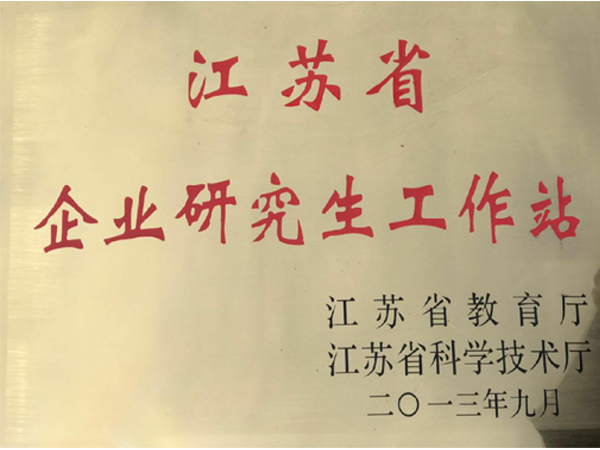 江苏省
企业研究生工作站
江苏省教育厅
江苏省科学技术厅
二〇一三年九月